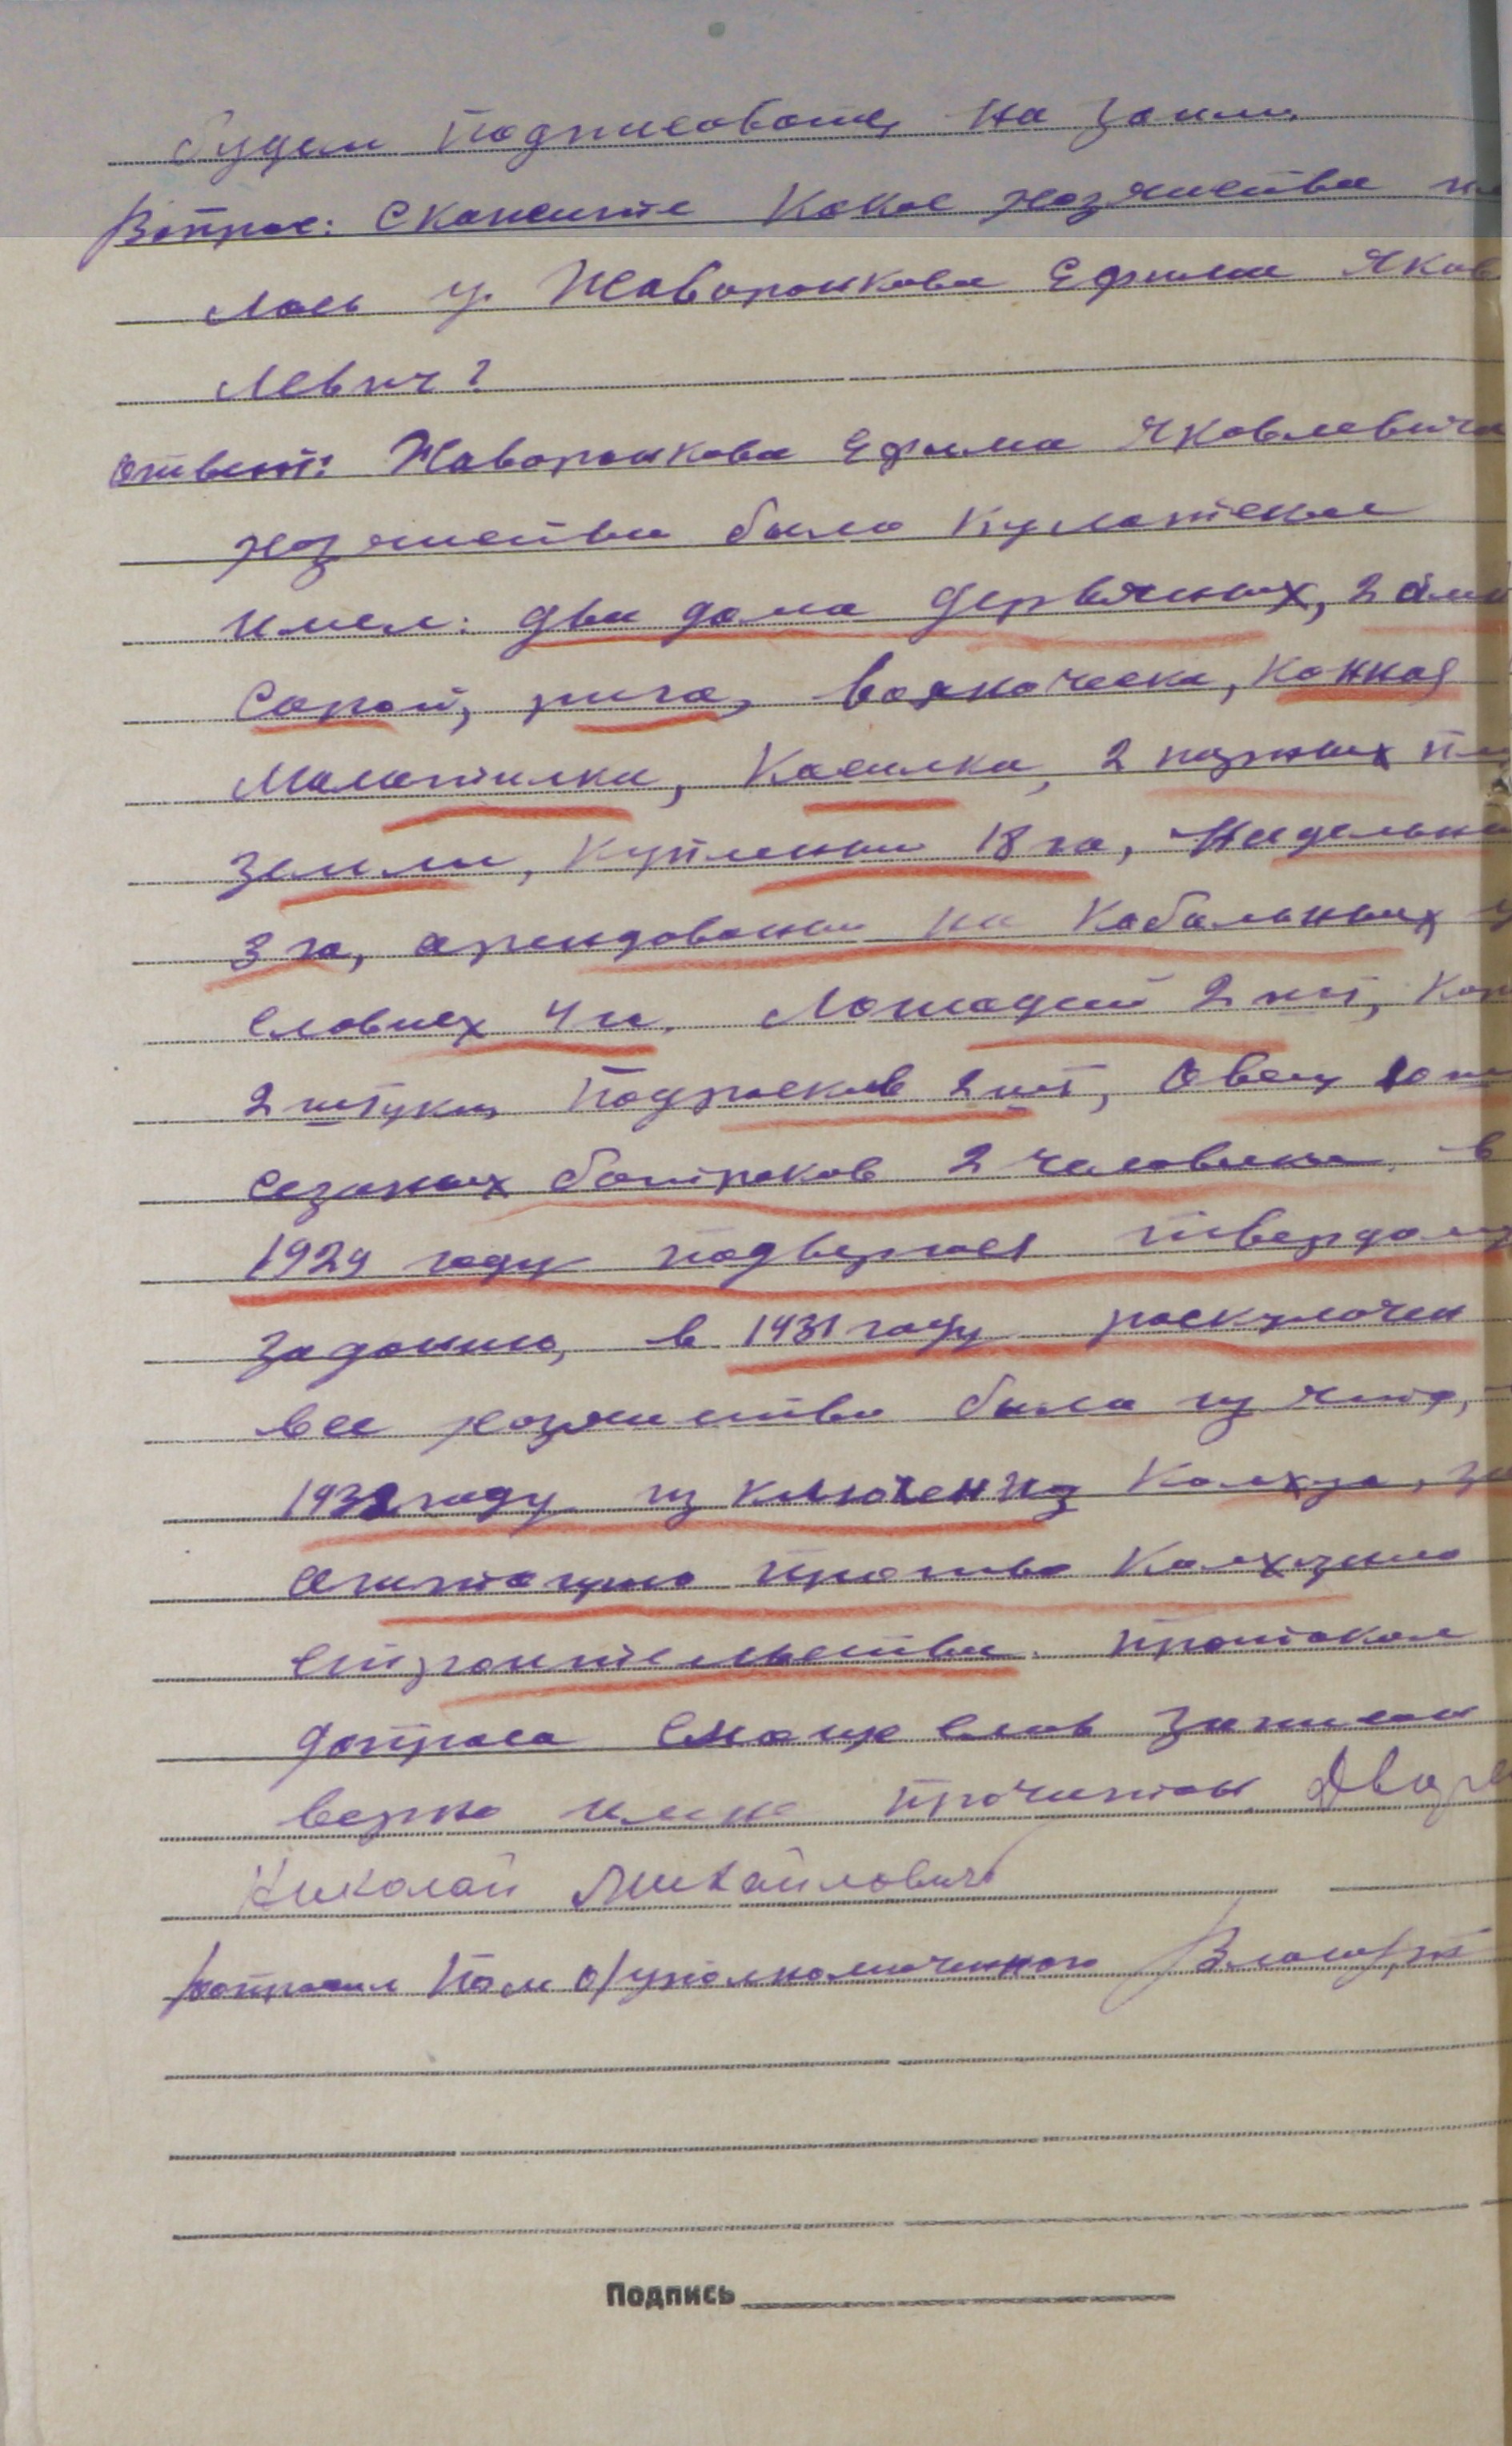 будем подписоватц на заим.
Вопрос: Скажите какое хозяиства
лось у Жаворонкова Ефима Яков
левич?
Ответ: Жаворонкова Ефима Яковлевича
хозяиства было кулатское
имел: два дома дервяных, 2 ам
сарай, рига, конная
малатилка, касилка, 2 парных пл
земли, купленои 18 га, Надельнои
3 га, арендованои на кабальных у
словиех 4 га. Лошадей 2 шт, кор
2 штуки, подросков 2 шт, Овец 10 шт
сезоных батраков 2 человека, в
1929 году подвергся твердому
заданию, в 1931 году раскулочен
все хозяиство было изъято,
1932 году из ключен из колхза, за
агитацию против колхзного
строительства. Протокол
допроса с моих слов записан
верно и мне прочитан Двор
Николай Михайлович
Допросил Пом о/уполномоченного
Подпись